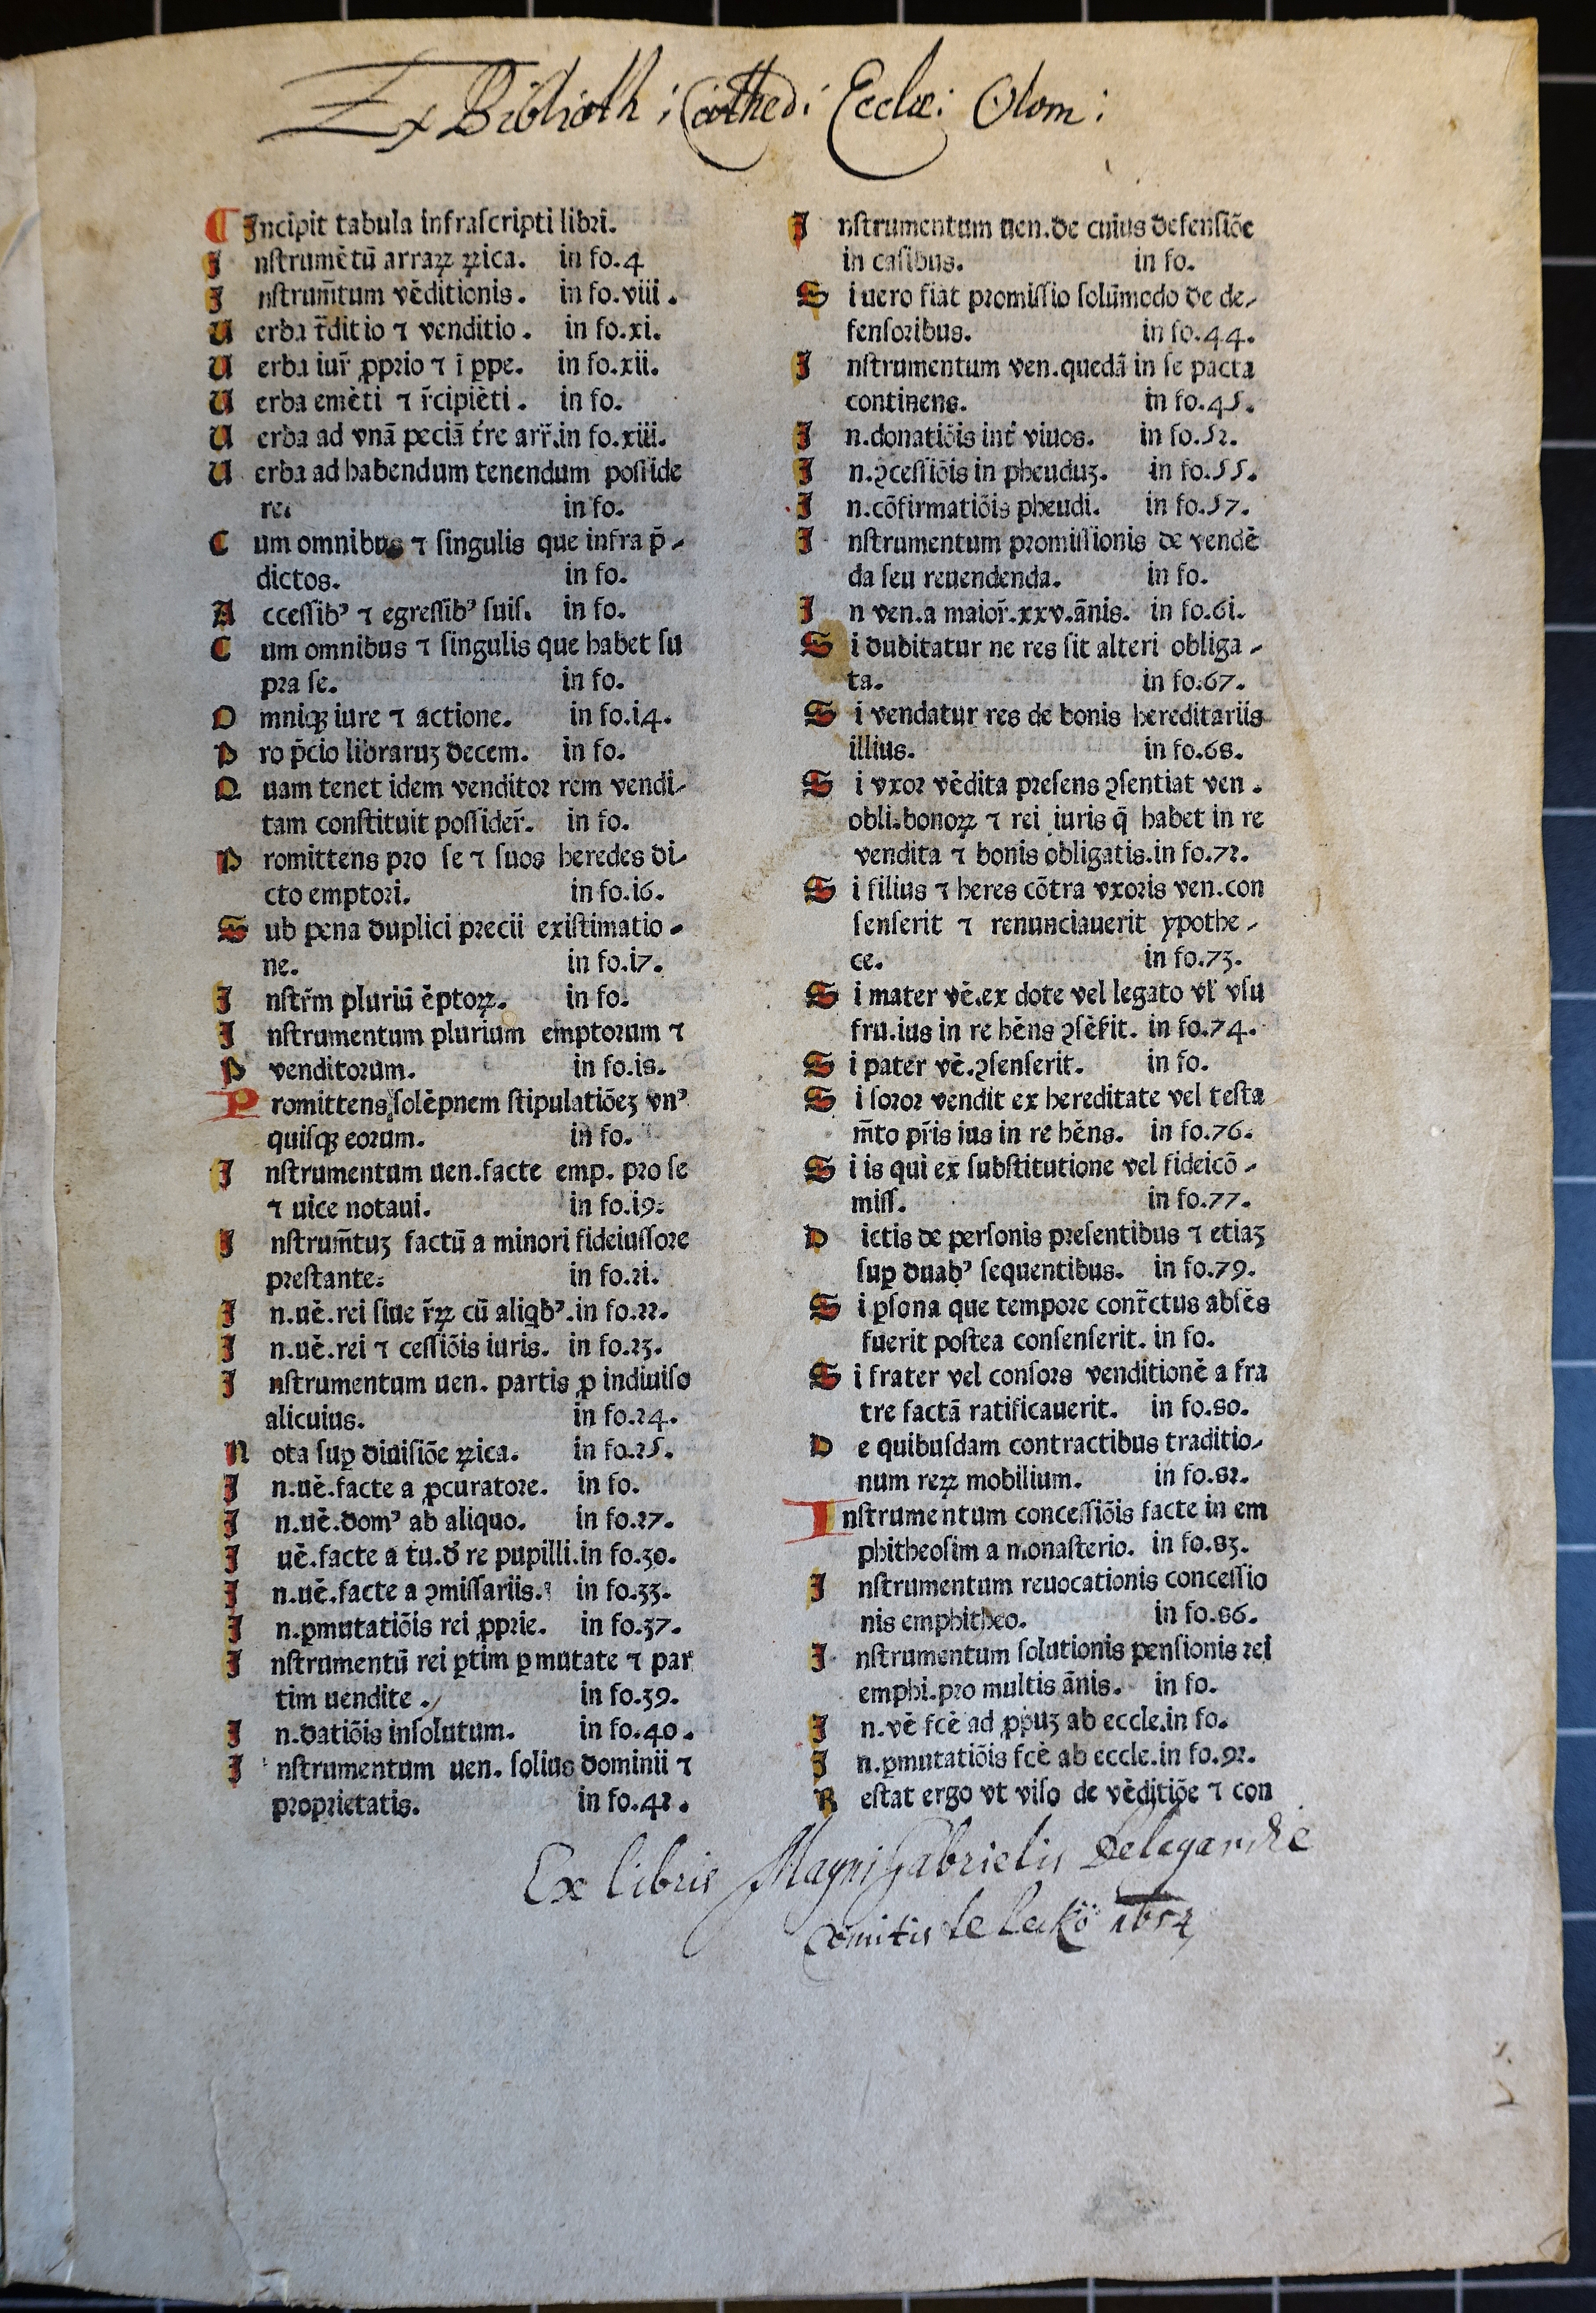 Ex Biblioth: Cathed: Eccłæ: Olom:
Incipit tabula infraſcripti libri.
Inſtrumētū arraꝝ ꝝica. in fo.4
Inſtrum̄tum vēditionis. in fo.viii.
Uerba tr̄ditio ⁊ venditio. in fo.xi.
Uerba iur̄ ꝓprio ⁊ ī ꝑpe. in fo.xii.
Uerba emēti ⁊ r̄cipiēti. in fo.
Uerba ad vnā peciā t̄re arr̄.in fo.xiii.
Uerba ad habendum tenendum poſſide
re. in fo.
Cum omnibus ⁊ ſingulis que infra p̄-
dictos. in fo.
Acceſſibꝰ ⁊ egreſſibꝰ ſuiſ. in fo.
Cum omnibus ⁊ ſingulis que habet ſu
pra ſe. in fo.
Omniqꝫ iure ⁊ actione. in fo.i4.
Pro p̄cio libraruꝫ decem. in fo.
Quam tenet idem venditor rem vendi-
tam conſtituit poſſider̄. in fo.
Promittens pro ſe ⁊ ſuos heredes di-
cto emptori. in fo.i6.
Sub pena duplici precii existimatio-
ne. in fo.i7.
Inſtr̄m pluriū ēptoꝝ. in fo.
Inſtrumentum plurium emptorum ⁊
P venditorum. in fo.i8.
Promittens ſolēpnem ſtipulatiōeꝫ vnꝰ
quiſqꝫ eorum. in fo.
Inſtrumentum uen.facte emp. pro ſe
⁊ uice notaui. in fo.i9.
Inſtrum̄tuꝫ factū a minori fideiuſſore
preſtante. in fo.2i.
In.uē.rei ſiue r̄ꝝ cū aliqbꝰ.in fo.22.
In.uē.rei ⁊ ceſſiōis iuris. in fo.23.
Inſtrumentum uen. partis ꝓ indiuiſo
alicuius. in fo.24.
Nota ſuꝑ diuiſiōe ꝝica. in fo.25.
In.uē.facte a ꝓcuratore. in fo.
In.uē.domꝰ ab aliquo. in fo.27.
I uē.facte a tu.d̄ re pupilli.in fo.30.
In.uē.facte a ꝯmiſſariis. in fo.33.
In.ꝑmutatiōis rei ꝓprie. in fo.37.
Inſtrumentū rei ꝑtim ꝑmutate ⁊ par
tim uendite. in fo.39.
In.datiōis inſolutum. in fo.40.
Inſtrumentum uen. ſolius dominii ⁊
proprietatis. in fo.42.
Inſtrumentum uen.de cuius defenſiōe
in caſibus. in fo.
Si uero fiat promiſſio ſolūmodo de de-
fenſoribus. in fo.44.
Inſtrumentum ven.quedā in ſe pacta
continens. in fo.45.
In.donatiōis int̄ viuos. in fo.52.
In.ꝯceſſiōis in pheuduꝫ. in fo.55.
In.cōfirmatiōis pheudi. in fo.57.
Inſtrumentum promiſſionis de vendē
da ſeu reuendenda. in fo.
In ven.a maior̄.xxv.ānis. in fo.6i.
Si dubitatur ne res ſit alteri obliga-
ta. in fo.67.
Si vendatur res de bonis hereditariis
illius. in fo.68.
Si vxor vēdita preſens ꝯſentiat ven.
obli.bonoꝝ ⁊ rei iuris q̄ habet in re
vendita ⁊ bonis obligatis.in fo.72.
Si filius ⁊ heres cōtra vxoris ven.con
ſenſerit ⁊ renunciauerit ypothe-
ce. in fo.73.
Si mater vē.ex dote vel legato vl̄ vſu
fru.ius in re hēns ꝯſēſit. in fo.74.
Si pater vē.ꝯſenſerit. in fo.
Si ſoror vendit ex hereditate vel teſta
m̄to pr̄is ius in re hēns. in fo.76.
Si is qui ex ſubſtitutione vel fideicō-
miſſ. in fo.77.
Dictis de perſonis preſentibus ⁊ etiaꝫ
ſuꝑ duabꝰ ſequentibus. in fo.79.
Si ꝑſona que tempore contr̄ctus abſēs
fuerit poſtea conſenſerit. in fo.
Si frater vel conſors venditionē a fra
tre factā ratificauerit. in fo.80.
De quibuſdam contractibus traditio-
num reꝝ mobilium. in fo.82.
Inſtrumentum conceſſiōis facte in em
phitheoſim a monaſterio. in fo.83.
Inſtrumentum reuocationis conceſſio
nis emphitheo. in fo.86.
Inſtrumentum ſolutionis penſionis rei
emphi.pro multis ānis. in fo.
In.vē fcē ad ꝓpuꝫ ab eccle.in fo.
In.ꝑmutatiōis fcē ab eccle.in fo.92.
Reſtat ergo vt viſo de vēditiōe ⁊ con
Ex libris Magni Gabrielis Delagardie
Comitis de Leckö 1652